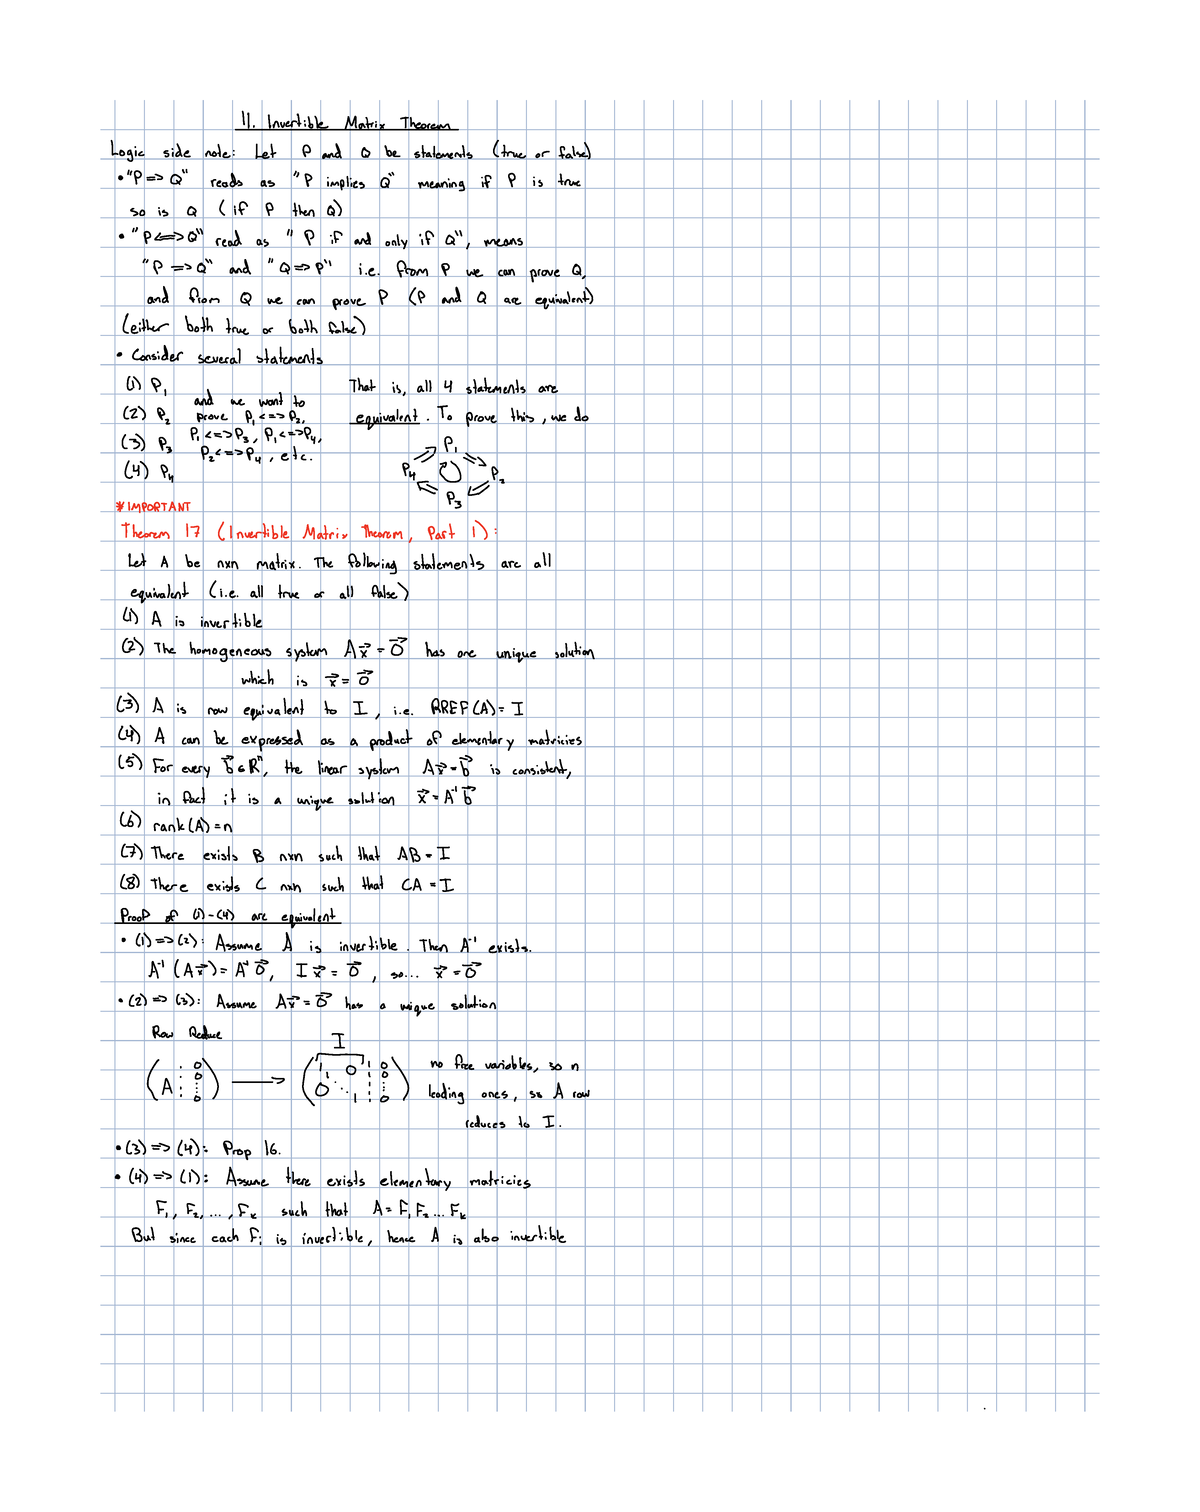 11. Invertible Matrix Theorem
Logic side note: Let P and Q be statements (true or false)
• "P => Q" reads as "P implies Q" meaning if P is true
so is Q (if P then Q)
• "P <=> Q" read as "P if and only if Q", means
"P => Q" and "Q => P" i.e. from P we can prove Q,
and from Q we can prove P (P and Q are equivalent)
(either both true or both false)
• Consider several statements
(1) P₁
(2) P₂
(3) P₃
(4) P₄
and we want to
prove P₁ <=> P₂,
P₁ <=> P₃, P₁ <=> P₄,
P₂ <=> P₄, etc.
That is, all 4 statements are
equivalent. To prove this, we do
P₁
P₄ P₂
P₃
* IMPORTANT
Theorem 17 (Invertible Matrix Theorem, Part 1):
Let A be nxn matrix. The following statements are all
equivalent (i.e. all true or all false)
(1) A is invertible
(2) The homogeneous system Ax⃗ = 0⃗ has one unique solution
which is x⃗ = 0⃗
(3) A is row equivalent to I, i.e. RREF(A) = I
(4) A can be expressed as a product of elementary matricies
(5) For every b⃗ ∈ Rⁿ, the linear system Ax⃗ = b⃗ is consistent,
in fact it is a unique solution x⃗ = A⁻¹b⃗
(6) rank(A) = n
(7) There exists B nxn such that AB = I
(8) There exists C nxn such that CA = I
Proof of (1)-(4) are equivalent
• (1) => (2): Assume A is invertible. Then A⁻¹ exists.
A⁻¹(Ax⃗) = A⁻¹0⃗, Ix⃗ = 0⃗, so... x⃗ = 0⃗
• (2) => (3): Assume Ax⃗ = 0⃗ has a unique solution
Row Reduce
I
(A ⋮ 0 0 ⋮ 0) → (1 1 0 0 ⋱ 1 ¦ 0 0 ⋮ 0)
no free variables, so n
leading ones, so A row
reduces to I.
• (3) => (4): Prop 16.
• (4) => (1): Assume there exists elementary matricies
F₁, F₂, ..., Fₖ such that A = F₁F₂...Fₖ
But since each Fᵢ is invertible, hence A is also invertible